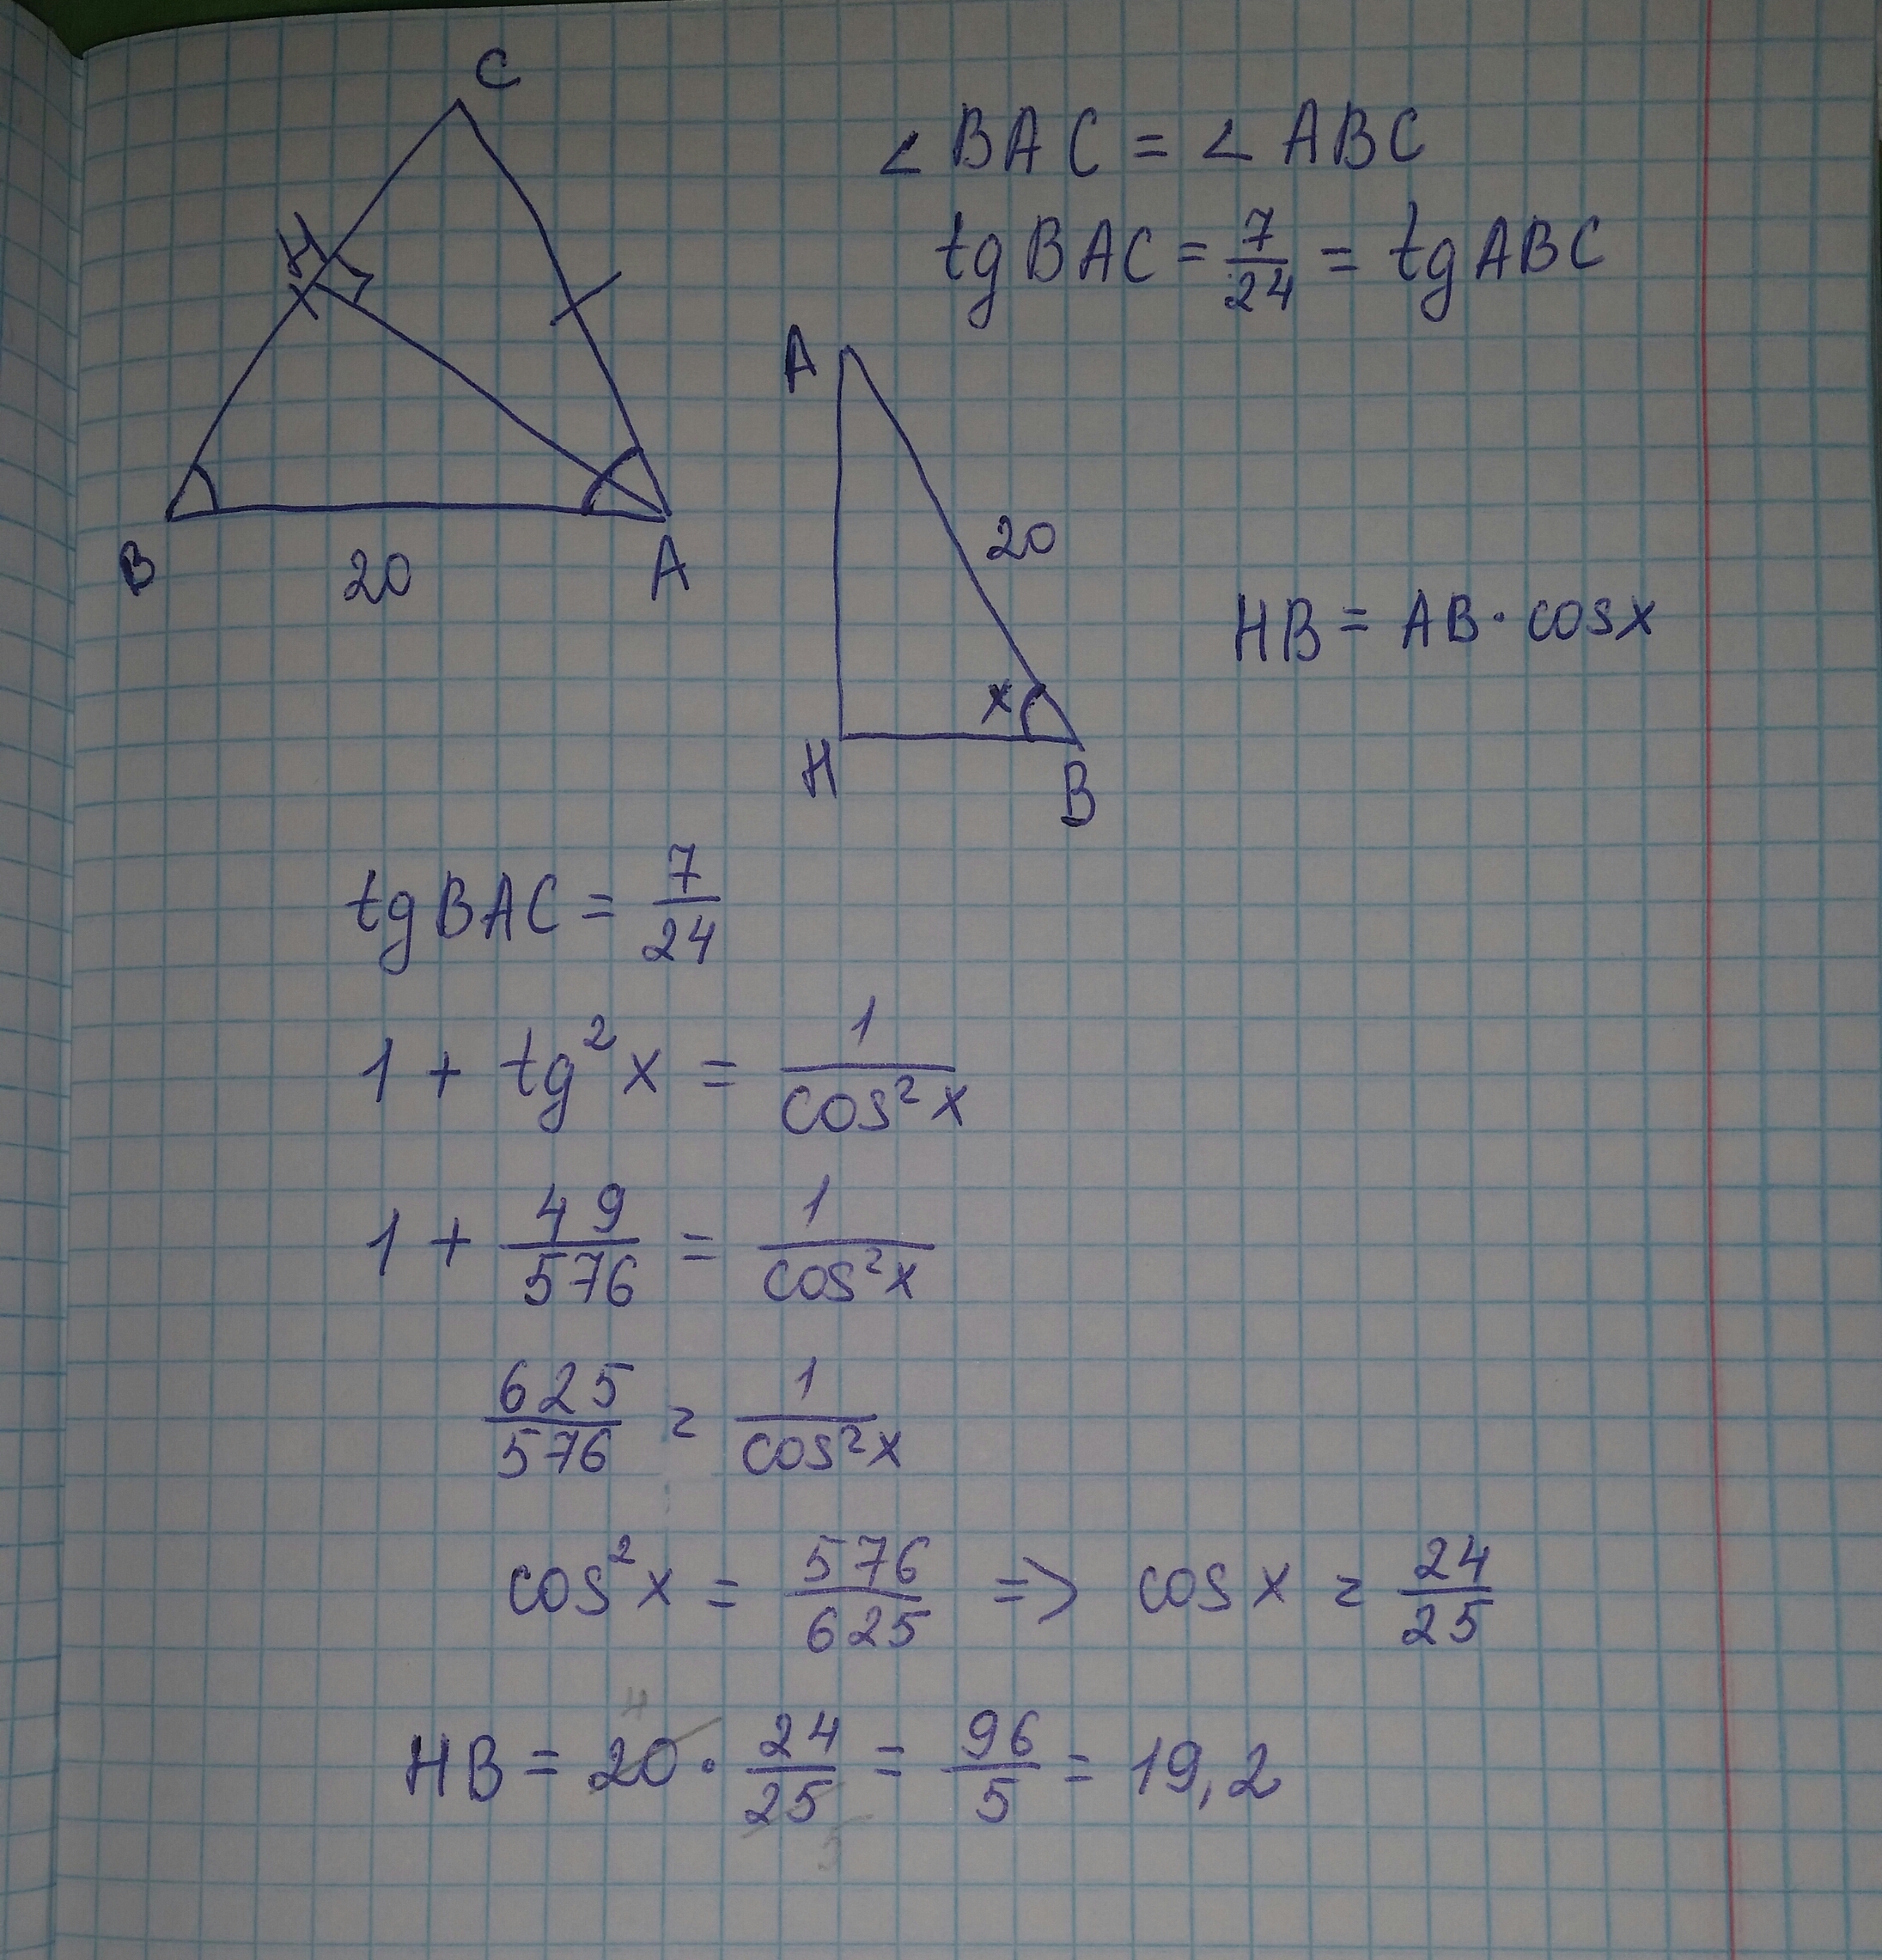 C
∠BAC = ∠ABC
H
tgBAC = 7/24 = tgABC
A
20
B
20
A
HB = AB · cosx
x
H
B
tgBAC = 7/24
1 + tg²x = 1/cos²x
1 + 49/576 = 1/cos²x
625/576 = 1/cos²x
cos²x = 576/625 => cosx = 24/25
4
HB = 20 · 24/25 = 96/5 = 19,2
5